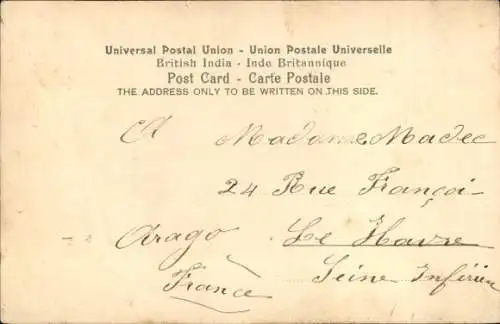 Universal Postal Union - Union Postale Universelle
British India - Inde Britannique
Post Card - Carte Postale
THE ADDRESS ONLY TO BE WRITTEN ON THIS SIDE.
A Madame Madec
24 Rue Françoi-
Arago Le Havre
Seine Inférieu
France